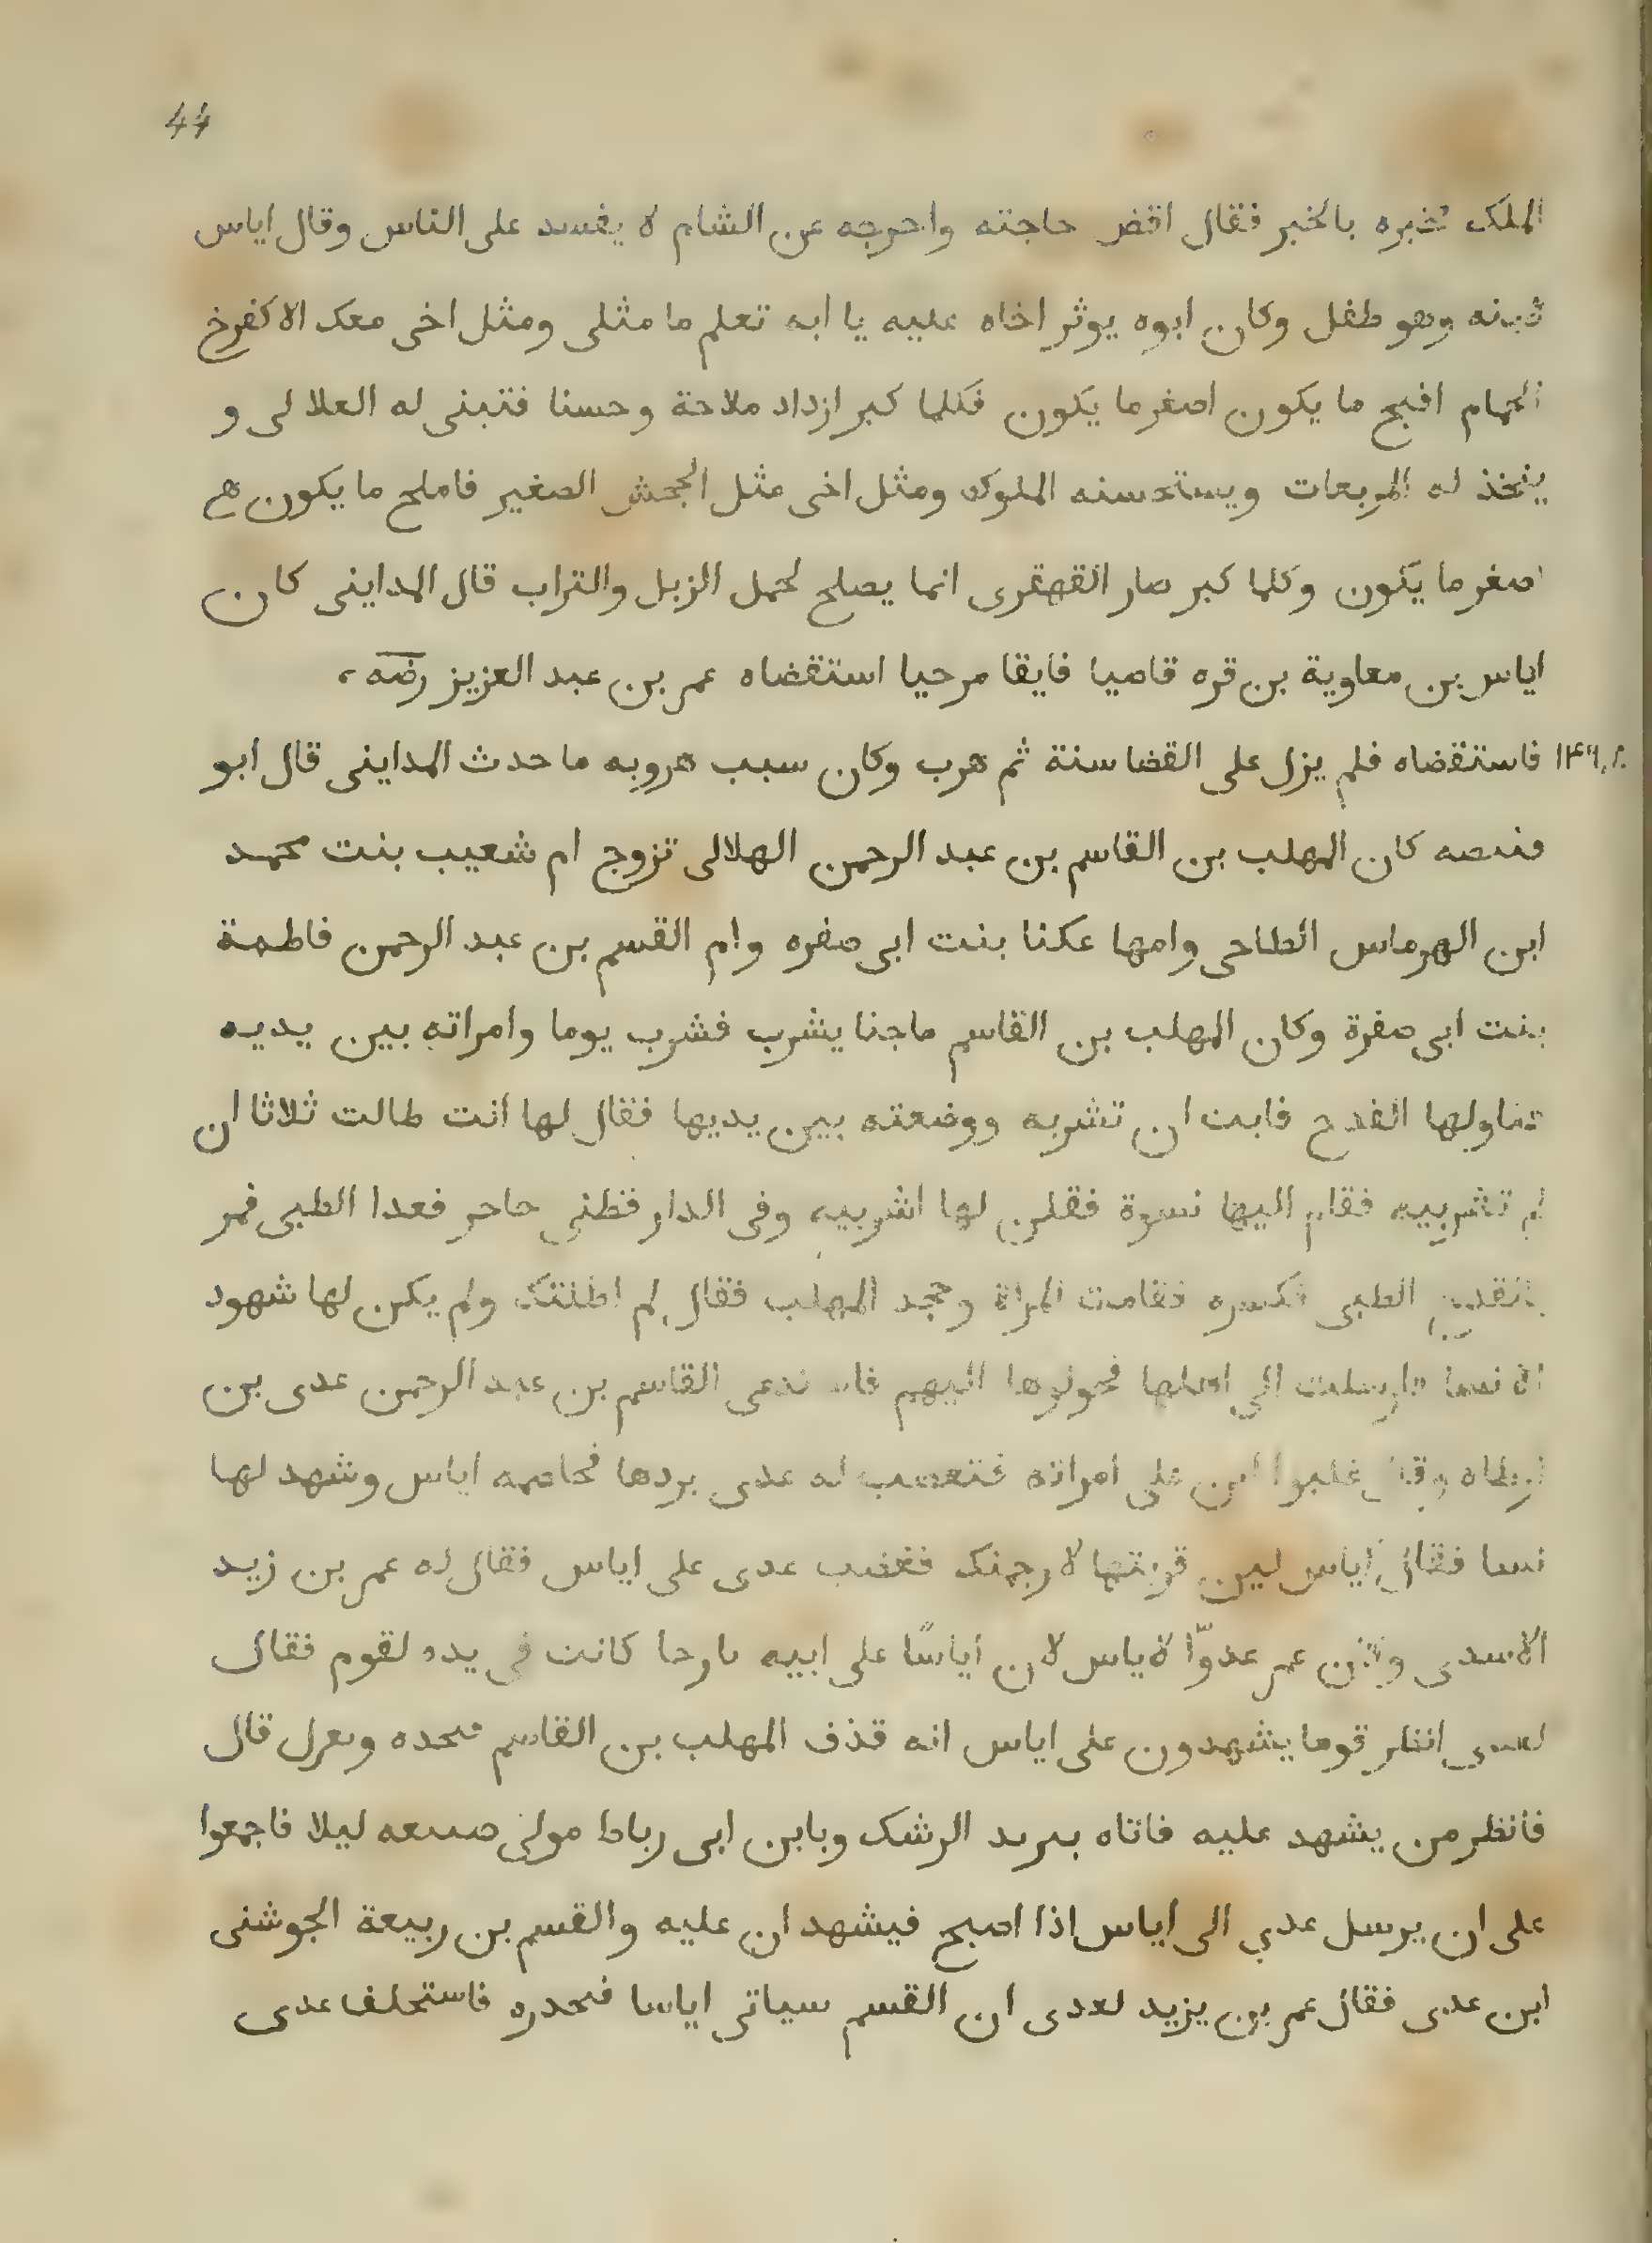 44
الملك فخبره بالخبر فقال اقض حاجته واخرجه عن الشام لا يفسد على الناس وقال اياس
لابنه وهو طفل وكان ابوه يوثر اخاه عليه يا ابه تعلم ما مثلى ومثل اخى معك الا كفرخ
الحمام اقبح ما يكون اصغر ما يكون فكلما كبر ازداد ملاحة وحسنا فتبنى له العلالى و
يتخذ له المربعات ويستحسنه الملوك ومثل اخى مثل الجحش الصغير فاملح ما يكون
اصغر ما يكون وكلما كبر صار القهقرى انما يصلح لحمل الزبل والتراب قال المداينى كان
اياس بن معاوية بن قره قاضيا فايقا مرحيا استقضاه عمر بن عبد العزيز رضه
فاستقضاه فلم يزل على القضا سنة ثم هرب وكان سبب هروبه ما حدث المداينى قال ابو
كان المهلب بن القاسم بن عبد الرحمن الهلالى تزوج ام شعيب بنت محمد
ابن الهرماس الطاحى وامها عكنا بنت ابى صفره وام القسم بن عبد الرحمن فاطمة
بنت ابى صفرة وكان المهلب بن القاسم ماجنا يشرب فشرب يوما وامراته بين يديه
فناولها القدح فابت ان تشربه ووضعته بين يديها فقال لها انت طالت ثلاثا ان
لم تشربيه فقام اليها نسوة فقلن لها اشربيه وفى الدار فظبى حاحر فعدا الظبى فمر
الظبى فكسره فقامت المراة وجحد المهلب فقال لم اطلقك ولم يكن لها شهود
الا نسا فارسلت الى اهلها فحولوها اليهم القاسم بن عبد الرحمن عدى بن
ارطاه وقال غلبوا ابن على امراته فتعصب له عدى بردها فخاصمه اياس وشهد لها
نسا فقال اياس لين قربتها لارجمنك فغضب عدى على اياس فقال له عمر بن زيد
الاسدى وكان عمر عدوّا لاياس لان اياسًا على ابيه بارحا كانت فى يده لقوم فقال
لعدى انظر قوما يشهدون على اياس انه قذف المهلب بن القاسم فيحده ويعزل قال
فانظر من يشهد عليه فاتاه بيريد الرشك وبابن ابى رباط مولى ليلا فاجمعوا
على ان يرسل عدي الى اياس اذا اصبح فيشهد ان عليه والقسم بن ربيعة الجوشنى
ابن عدى فقال عمر بن يزيد لعدى ان القسم سياتى اياسا فيحدره فاستحلف عدى